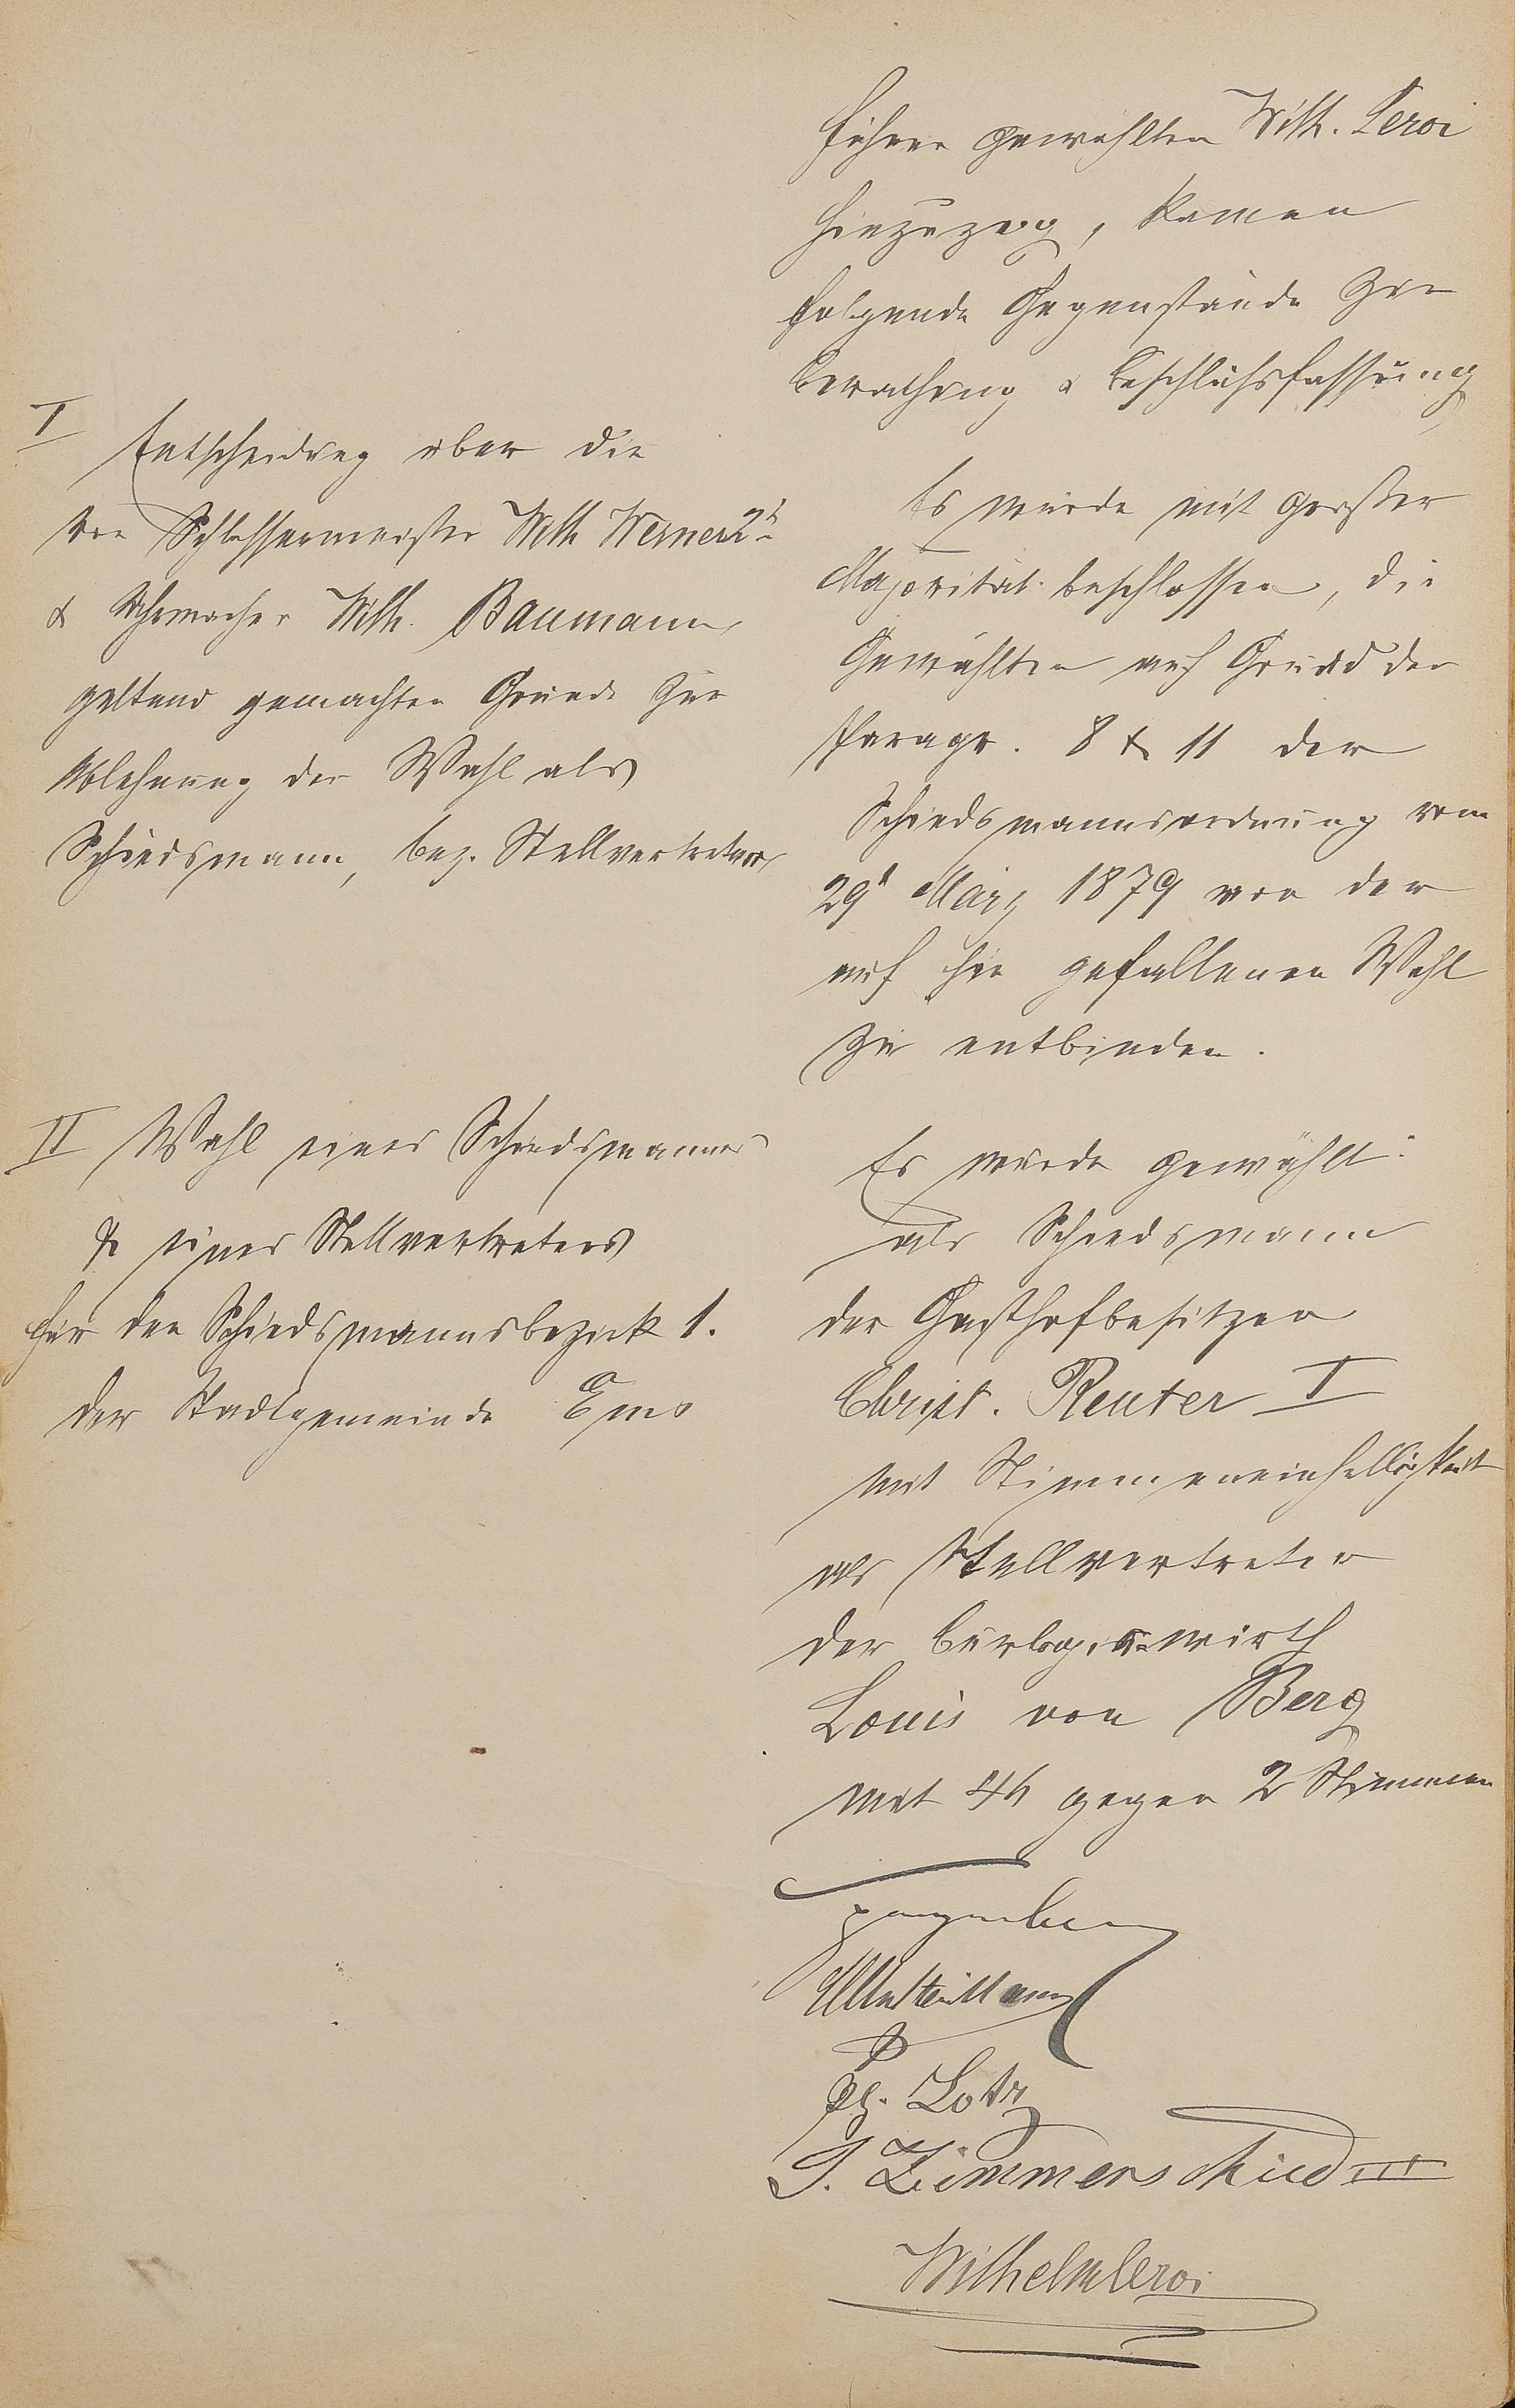 führer gewählten Wilh. Leroi
hinzuzog, kamen
folgende Gegenstände zur
Berathung & Beschlußfassung
I Entscheidung über die
von Schlossermeister Wilh. Werner 2t
& Uhrmacher Wilh. Baumann
geltend gemachten Gründe zur
Ablehnung der Wahl als
Schiedsmann, bez. Stellvertreter
Es wurde mit großer
Majorität beschlossen, die
Gewählten auf Grund der
Paragr. 8 & 11 der
Schiedsmannsordnung vom
29t März 1879 von der
auf sie gefallenen Wahl
zu entbinden.
II Wahl eines Schiedsmannes
& eines Stellvertreters
für den Schiedsmannsbezirk 1.
der Stadtgemeinde Ems
Es wurde gewählt:
als Schiedsmann
der Gasthofbesitzer
Christ. Reuter I
mit Stimmeneinhelligkeit
als Stellvertreter
der
Louis von Berg
mit gegen 2 Stimmen
Ph. Lotz
J. Zimmerschied III
Wilhelm Leroi